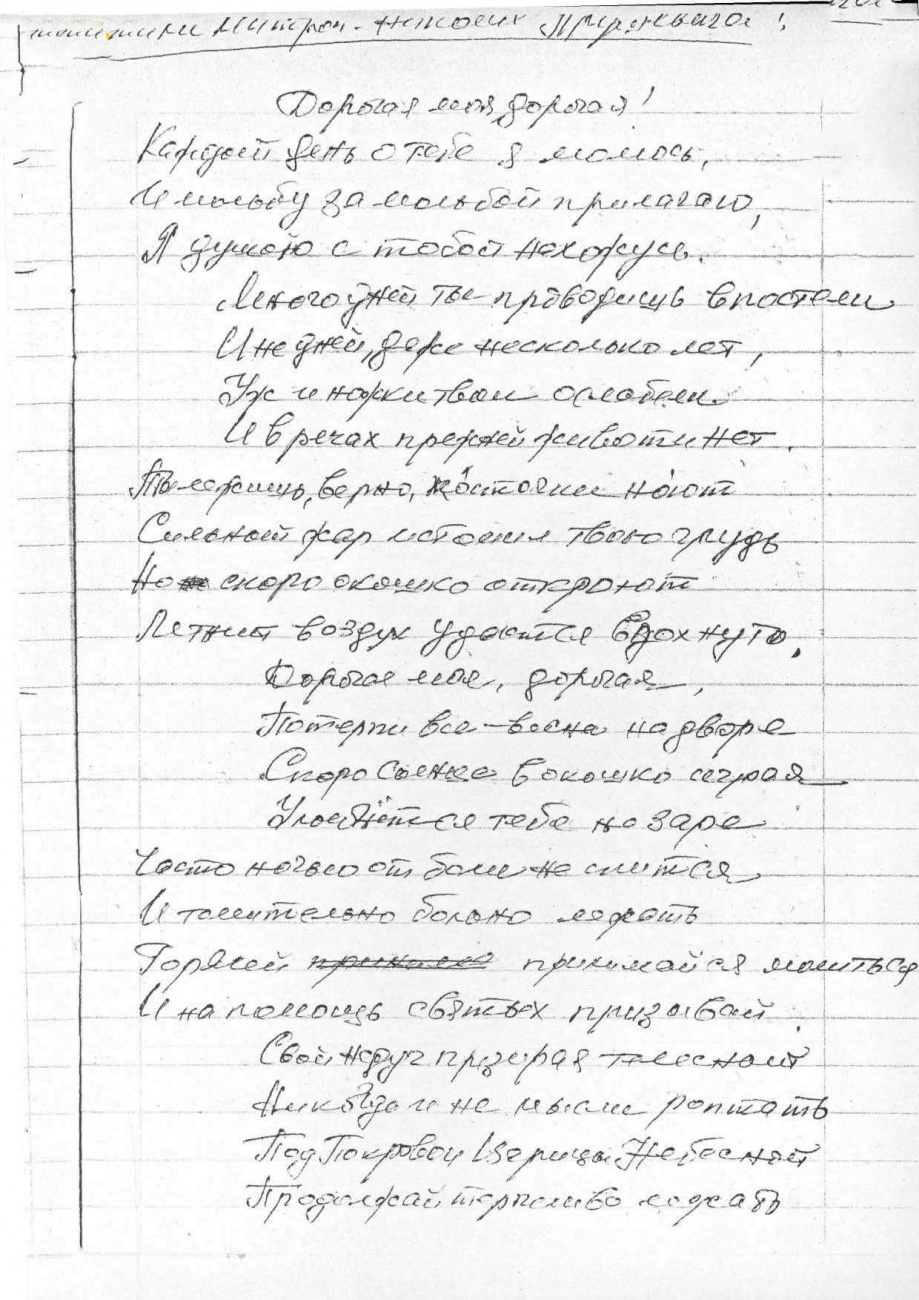 Дорогая моя, дорогая!
Каждый день о тебе я молюсь,
И мольбу за мольбой прилагаю,
Я душою с тобой нахожусь.
Много дней ты проводишь в постели
И не дней, даже несколько лет,
Уж и ножки твои ослабели
И в речах прежней живости нет.
Ты лежишь, верно, косточки ноют
Сильный жар истомил твою грудь
Но скоро окошко откроют
Летний воздух удастся вдохнуть,
Дорогая моя, дорогая,
Потерпи все – весна на дворе
Скоро солнце в окошко играя
Улыбнётся тебе на заре
Часто ночью от боли не спится
И томительно больно лежать
Горячей принимайся молиться
И на помощь святых призывай
Свой недуг презирая телесный
Никогда и не мысли роптать
Под Покровом Царицы Небесной
Продолжай терпеливо лежать